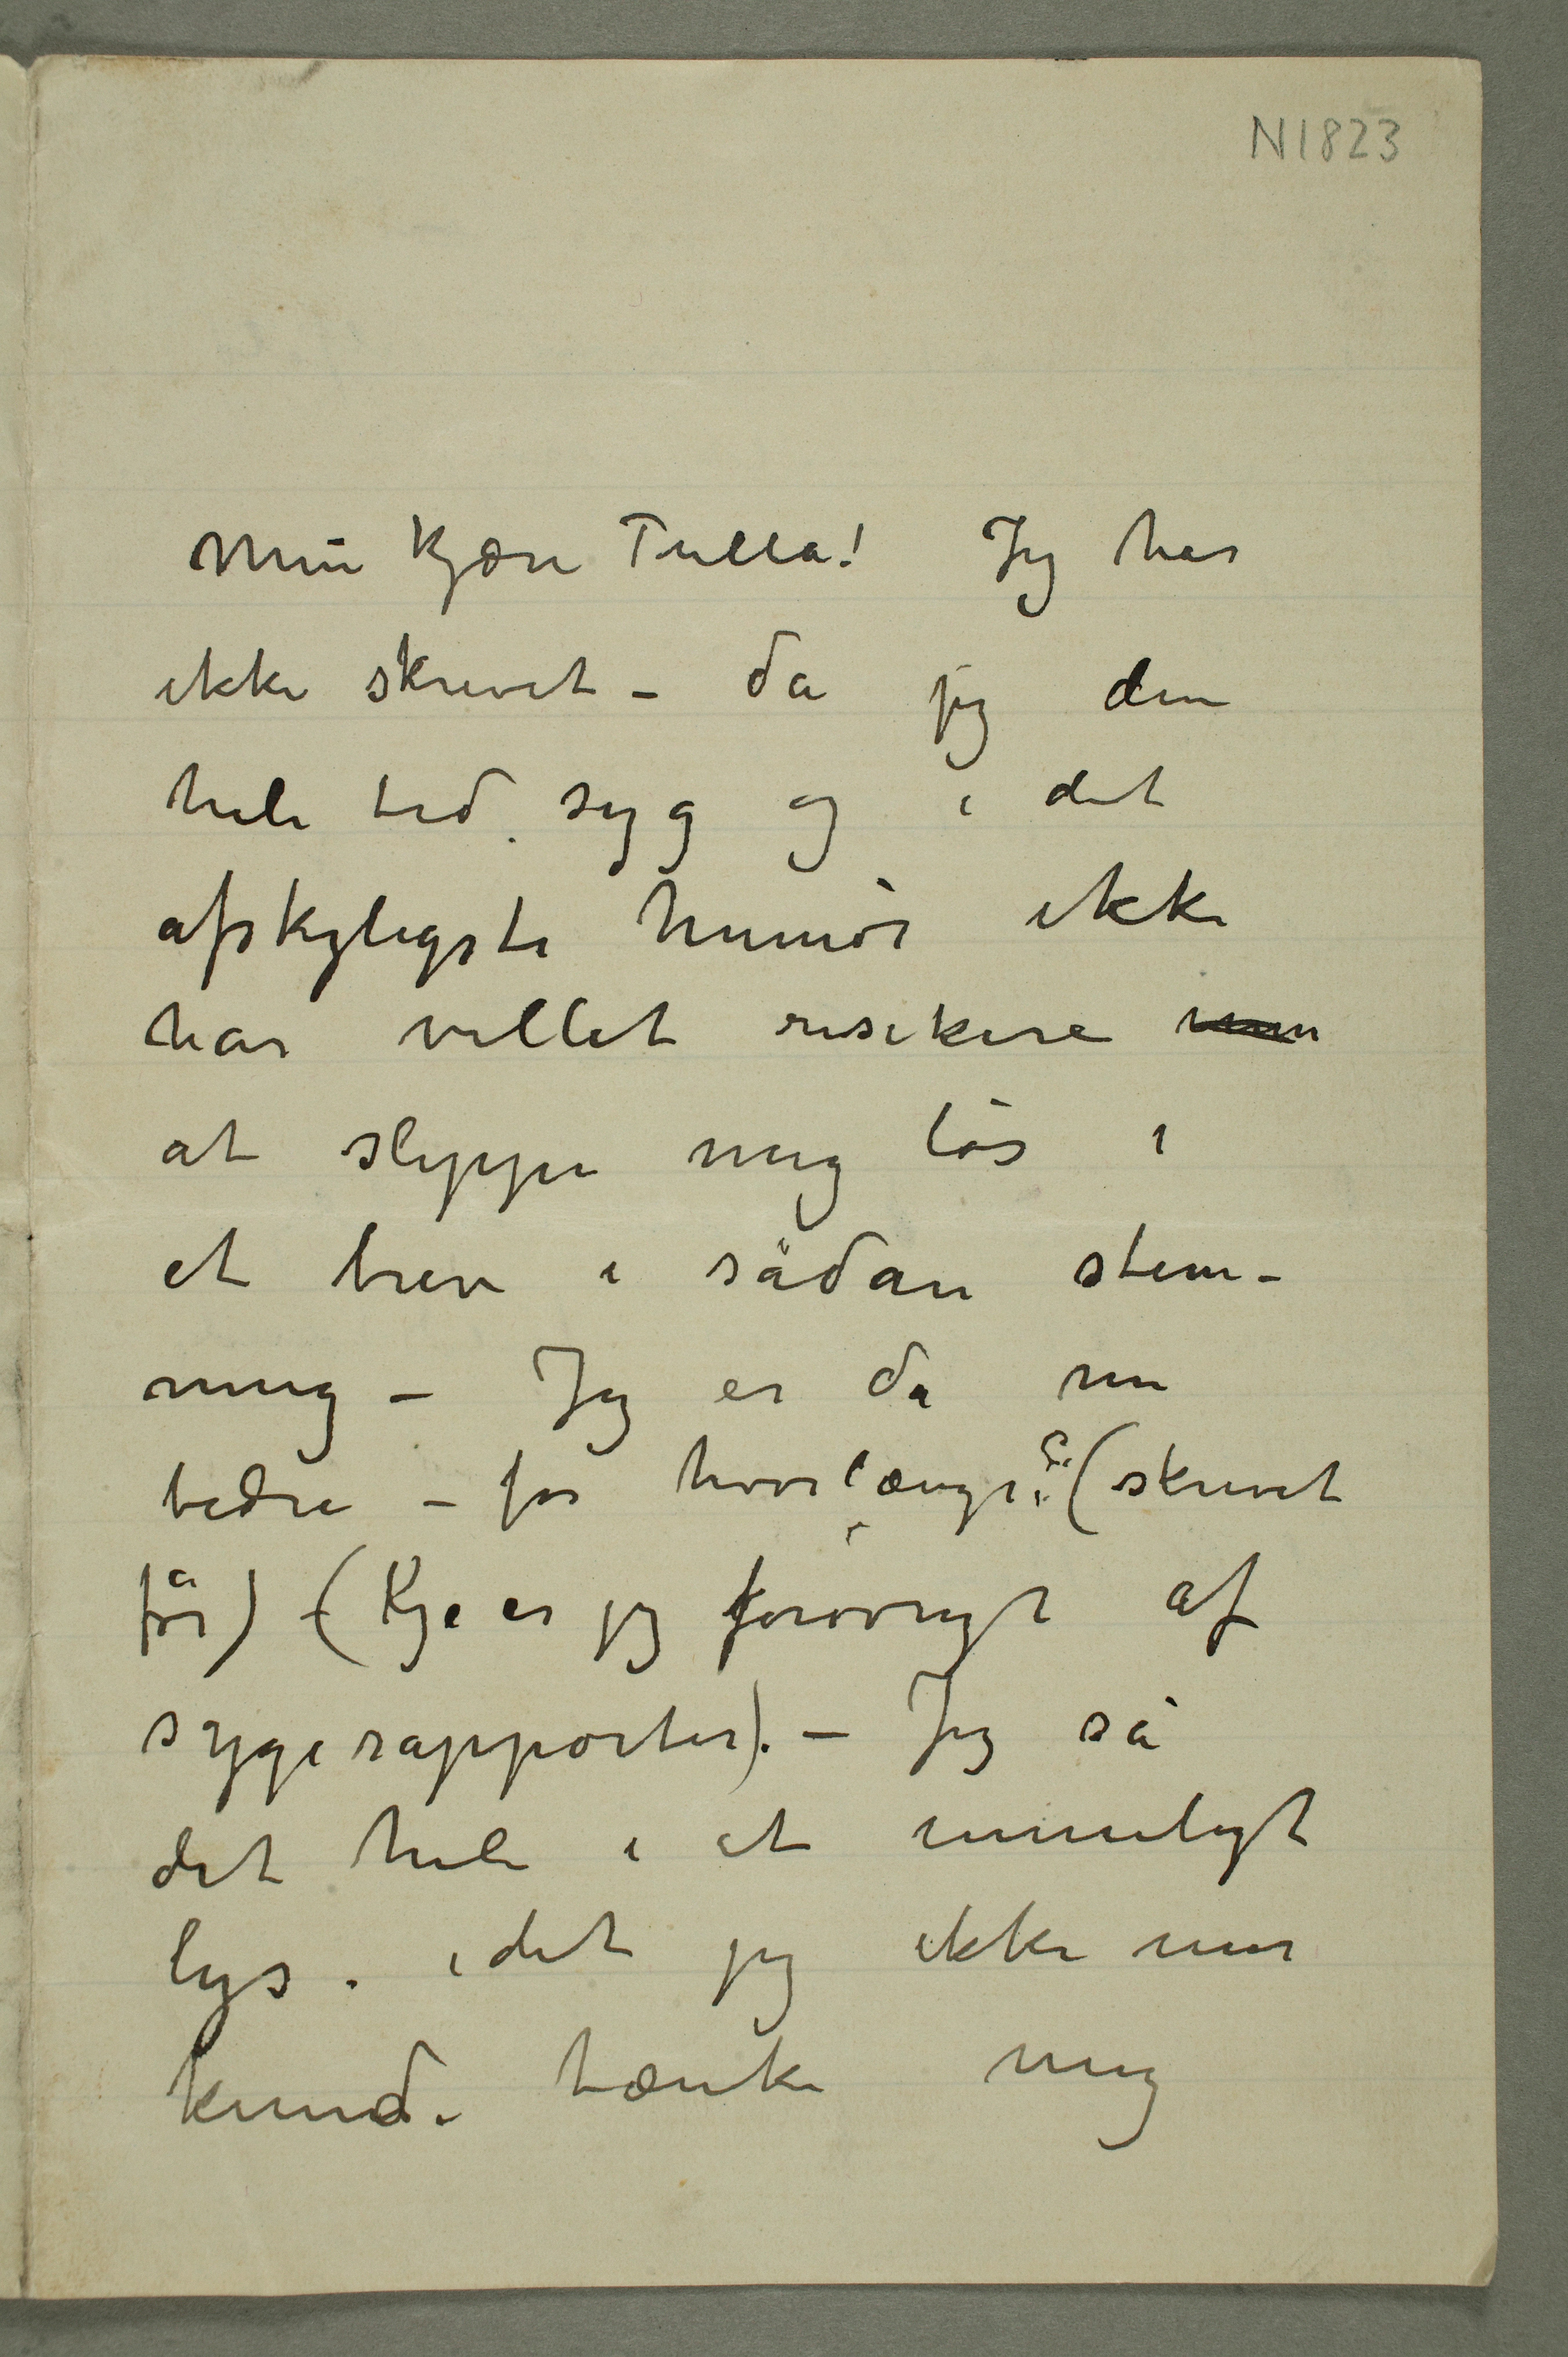 N1823
Min kjære Tulla! Jeg har
ikke skrevet – da jeg den
hele tid syg og i det
afskyligste humör ikke
har villet risikere
at slippe mig lös i
et brev i sådan stem-
ning – Jeg er da nu
bedre – for hvorlænge? (skrevet
för) – (Kje er jeg forövrigt af
sygerapporter). – Jeg så
det hele i et umuligt
lys. idet jeg ikke mer
kunde tænke mig